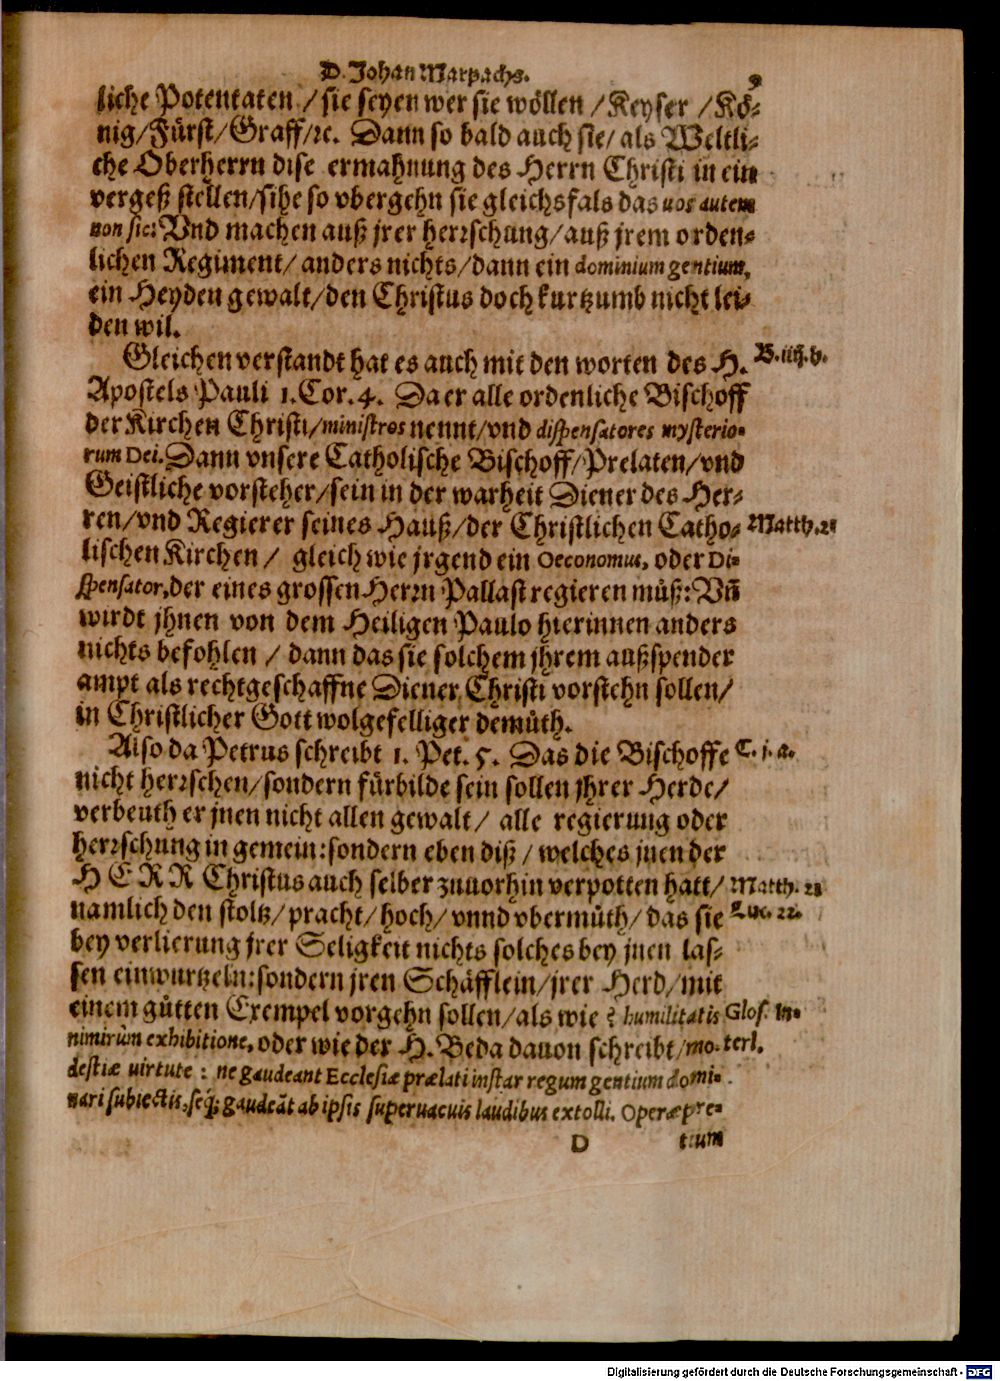 D. Johan Marpachs. 9
liche Potentaten / sie seyen wer sie wöllen / Keyser / Kö-
nig/Fürst/Graff/ꝛc. Dann so bald auch sie/ als Weltli-
che Oberherrn dise ermahnung des Herrn Christi in ein
vergeß stellen/sihe so vbergehn sie gleichsfals das uos autem
non sic: Vnd machen auß jrer herrschung/auß jrem orden-
lichen Regiment/ anders nichts/dann ein dominium gentium,
ein Heyden gewalt/den Christus doch kurtzumb nicht lei-
den wil.
Gleichen verstandt hat es auch mit den worten des H. B. iiij. b.
Apostels Pauli 1. Cor. 4. Da er alle ordenliche Bischoff
der Kirchen Christi/ministros nennt/vnd dispensatores mysterio-
rum Dei. Dann vnsere Catholische Bischoff/Prelaten/vnd
Geistliche vorsteher/sein in der warheit Diener des Her-
ren/vnd Regierer seines Hauß/der Christlichen Catho- Matth. 21
lischen Kirchen / gleich wie jrgend ein Oeconomus, oder Di-
spensator, der eines grossen Herrn Pallast regieren müß: Vñ
wirdt jhnen von dem Heiligen Paulo hierinnen anders
nichts befohlen / dann das sie solchem jhrem außspender
ampt als rechtgeschaffne Diener Christi vorstehn sollen/
in Christlicher Gott wolgefelliger demůth.
Also da Petrus schreibt 1. Pet. 5. Das die Bischoffe C. j. a.
nicht herrschen/sondern fürbilde sein sollen jhrer Herde/
verbeuth er jnen nicht allen gewalt/ alle regierung oder
herrschung in gemein: sondern eben diß / welches jnen der
HERR Christus auch selber zuuorhin verpotten hatt/ Matth. 21
namlich den stoltz/pracht/hoch/vnnd vbermüth/ das sie Luc. 22.
bey verlierung jrer Seligkeit nichts solches bey jnen las-
sen einwurtzeln: sondern jren Schäfflein/jrer Herd/mit
einem gůtten Exempel vorgehn sollen/als wie ? humilitatis Glos. In-
nimirùm exhibitione, oder wie der H. Beda dauon schreibt/mo- terl.
destiæ uirtute : ne gaudeant Ecclesiæ prælati instar regum gentium domi-
nari subiectis, seq́; gaudeāt ab ipsis superuacuis laudibus extolli. Operæpre-
D tium
Digitalisierung gefördert durch die Deutsche Forschungsgemeinschaft - DFG